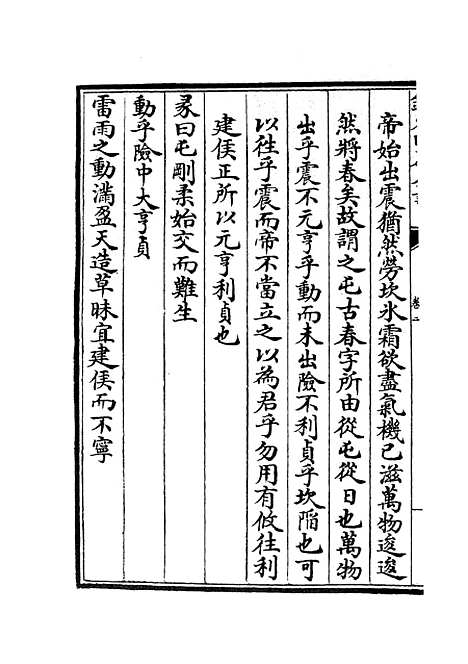 帝始出震猶然勞坎氷霜欲盡氣機已滋萬物逡逡
然將春矣故謂之屯古春字所由從屯從日也萬物
出乎震不元亨乎動而未出險不利貞乎坎陷也可
以往乎震而帝不當立之以為君乎勿用有攸往利
建侯正所以元亨利貞也
彖曰屯剛柔始交而難生
動乎險中大亨貞
雷雨之動滿盈天造草昧宜建侯而不寧